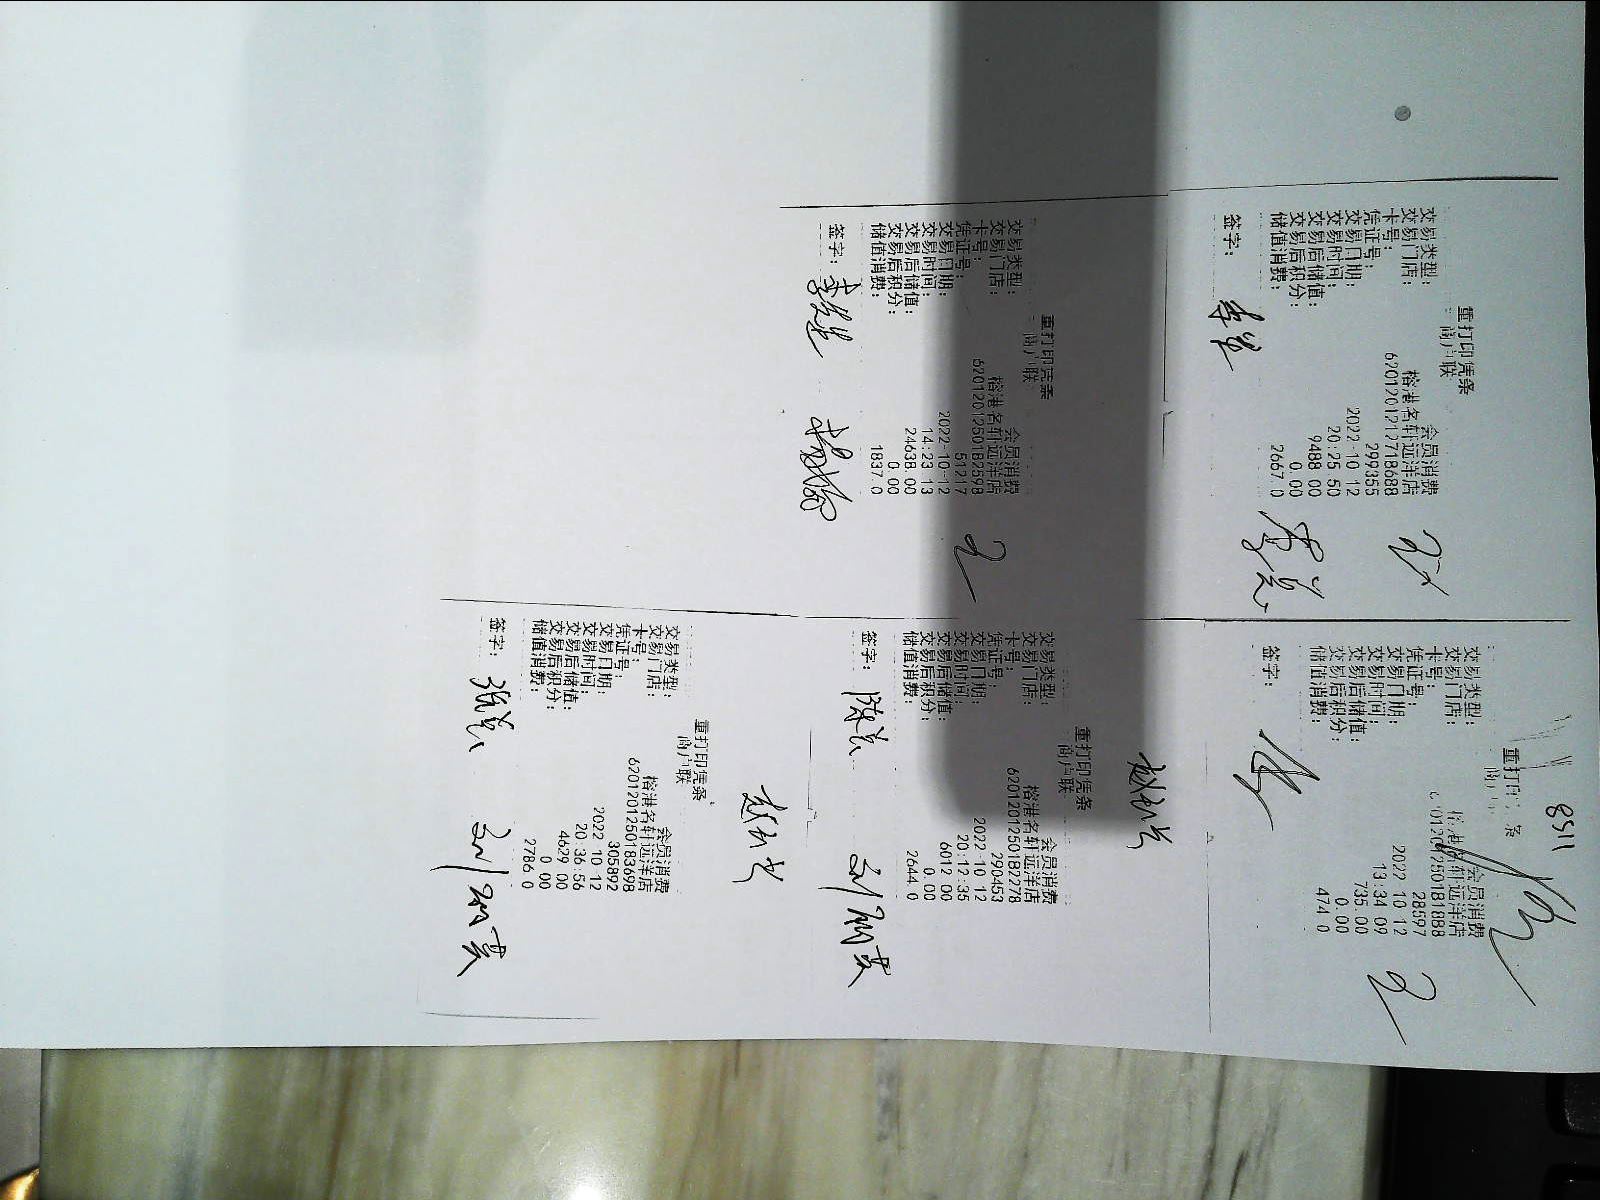 重打印凭条
商户联
交易类型： 会员消费
交易门店： 榕港名轩远洋店
卡号： 6201201217718688
凭证号： 299355
交易日期： 2022 10 12
交易时间： 20:25 50
交易后储值： 9488 00
交易后积分： 0 00
储值消费： 2667.0
签字：
重打印凭条
商户联
交易类型： 会员消费
交易门店： 榕港名轩远洋店
卡号： 6201201250182598
凭证号： 51217
交易日期： 2022-10-12
交易时间： 14:23 13
交易后储值： 24638.00
交易后积分： 0.00
储值消费： 1837.0
签字：
8511
重打
交易类型： 会员消费
交易门店： 轩远洋店
卡号： 250181888
凭证号： 28597
交易日期： 2022 10 12
交易时间： 13:34 09
交易后储值： 735 00
交易后积分： 0.00
储值消费： 474 0
签字：
重打印凭条
商户联
交易类型： 会员消费
交易门店： 榕港名轩远洋店
卡号： 6201201250182278
凭证号： 290453
交易日期： 2022 10 12
交易时间： 20:12:35
交易后储值： 6012 00
交易后积分： 0.00
储值消费： 2644.0
签字： 陈总
重打印凭条
商户联
交易类型： 会员消费
交易门店： 榕港名轩远洋店
卡号： 6201201250183698
凭证号： 305892
交易日期： 2022 10 12
交易时间： 20 36:56
交易后储值： 4629 00
交易后积分： 0 00
储值消费： 2786.0
签字： 张总